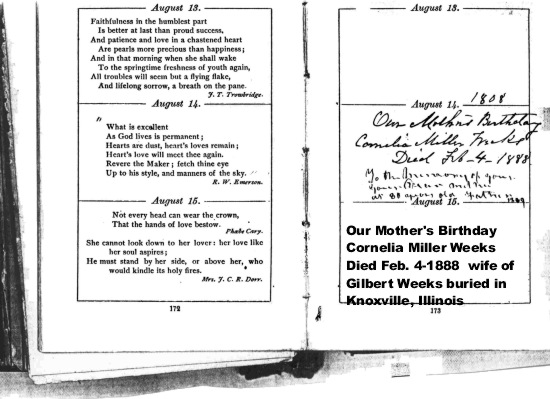 August 13.
Faithfulness in the humblest part
Is better at last than proud success,
And patience and love in a chastened heart
Are pearls more precious than happiness;
And in that morning when she shall wake
To the springtime freshness of youth again,
All troubles will seem but a flying flake,
And lifelong sorrow, a breath on the pane.
J. T. Trowbridge.
August 14.
" What is excellent
As God lives is permanent;
Hearts are dust, heart's loves remain;
Heart's love will meet thee again.
Revere the Maker; fetch thine eye
Up to his style, and manners of the sky."
R. W. Emerson.
August 15.
Not every head can wear the crown,
That the hands of love bestow.
Phebe Cary.
She cannot look down to her lover: her love like
her soul aspires;
He must stand by her side, or above her, who
would kindle its holy fires.
Mrs. J. C. R. Dorr.
172
August 13.
August 14. 1808
Our Mother's Birthday
Cornelia Miller Weeks
Died Feb-4-1888
To the memory of your
at 80 years old
August 15.
Our Mother's Birthday
Cornelia Miller Weeks
Died Feb. 4-1888 wife of
Gilbert Weeks buried in
Knoxville, Illinois
173